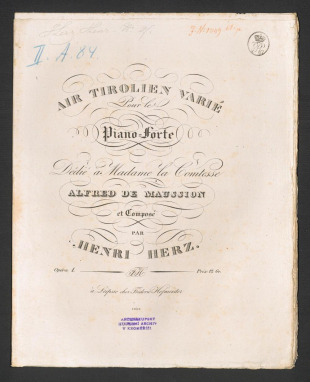 II. A 84
AIR TIROLIEN VARIÉ
Pour le
Piano-Forte
Dédié à Madame la Comtesse
ALFRED DE MAUSSION
et Composé
PAR
HENRI HERZ.
Opéra 1.
à Leipsic chez Fréderic Hofmeister
ARCIBISKUPSKÝ
HUDEBNÍ ARCHIV
V KROMĚŘÍŽI